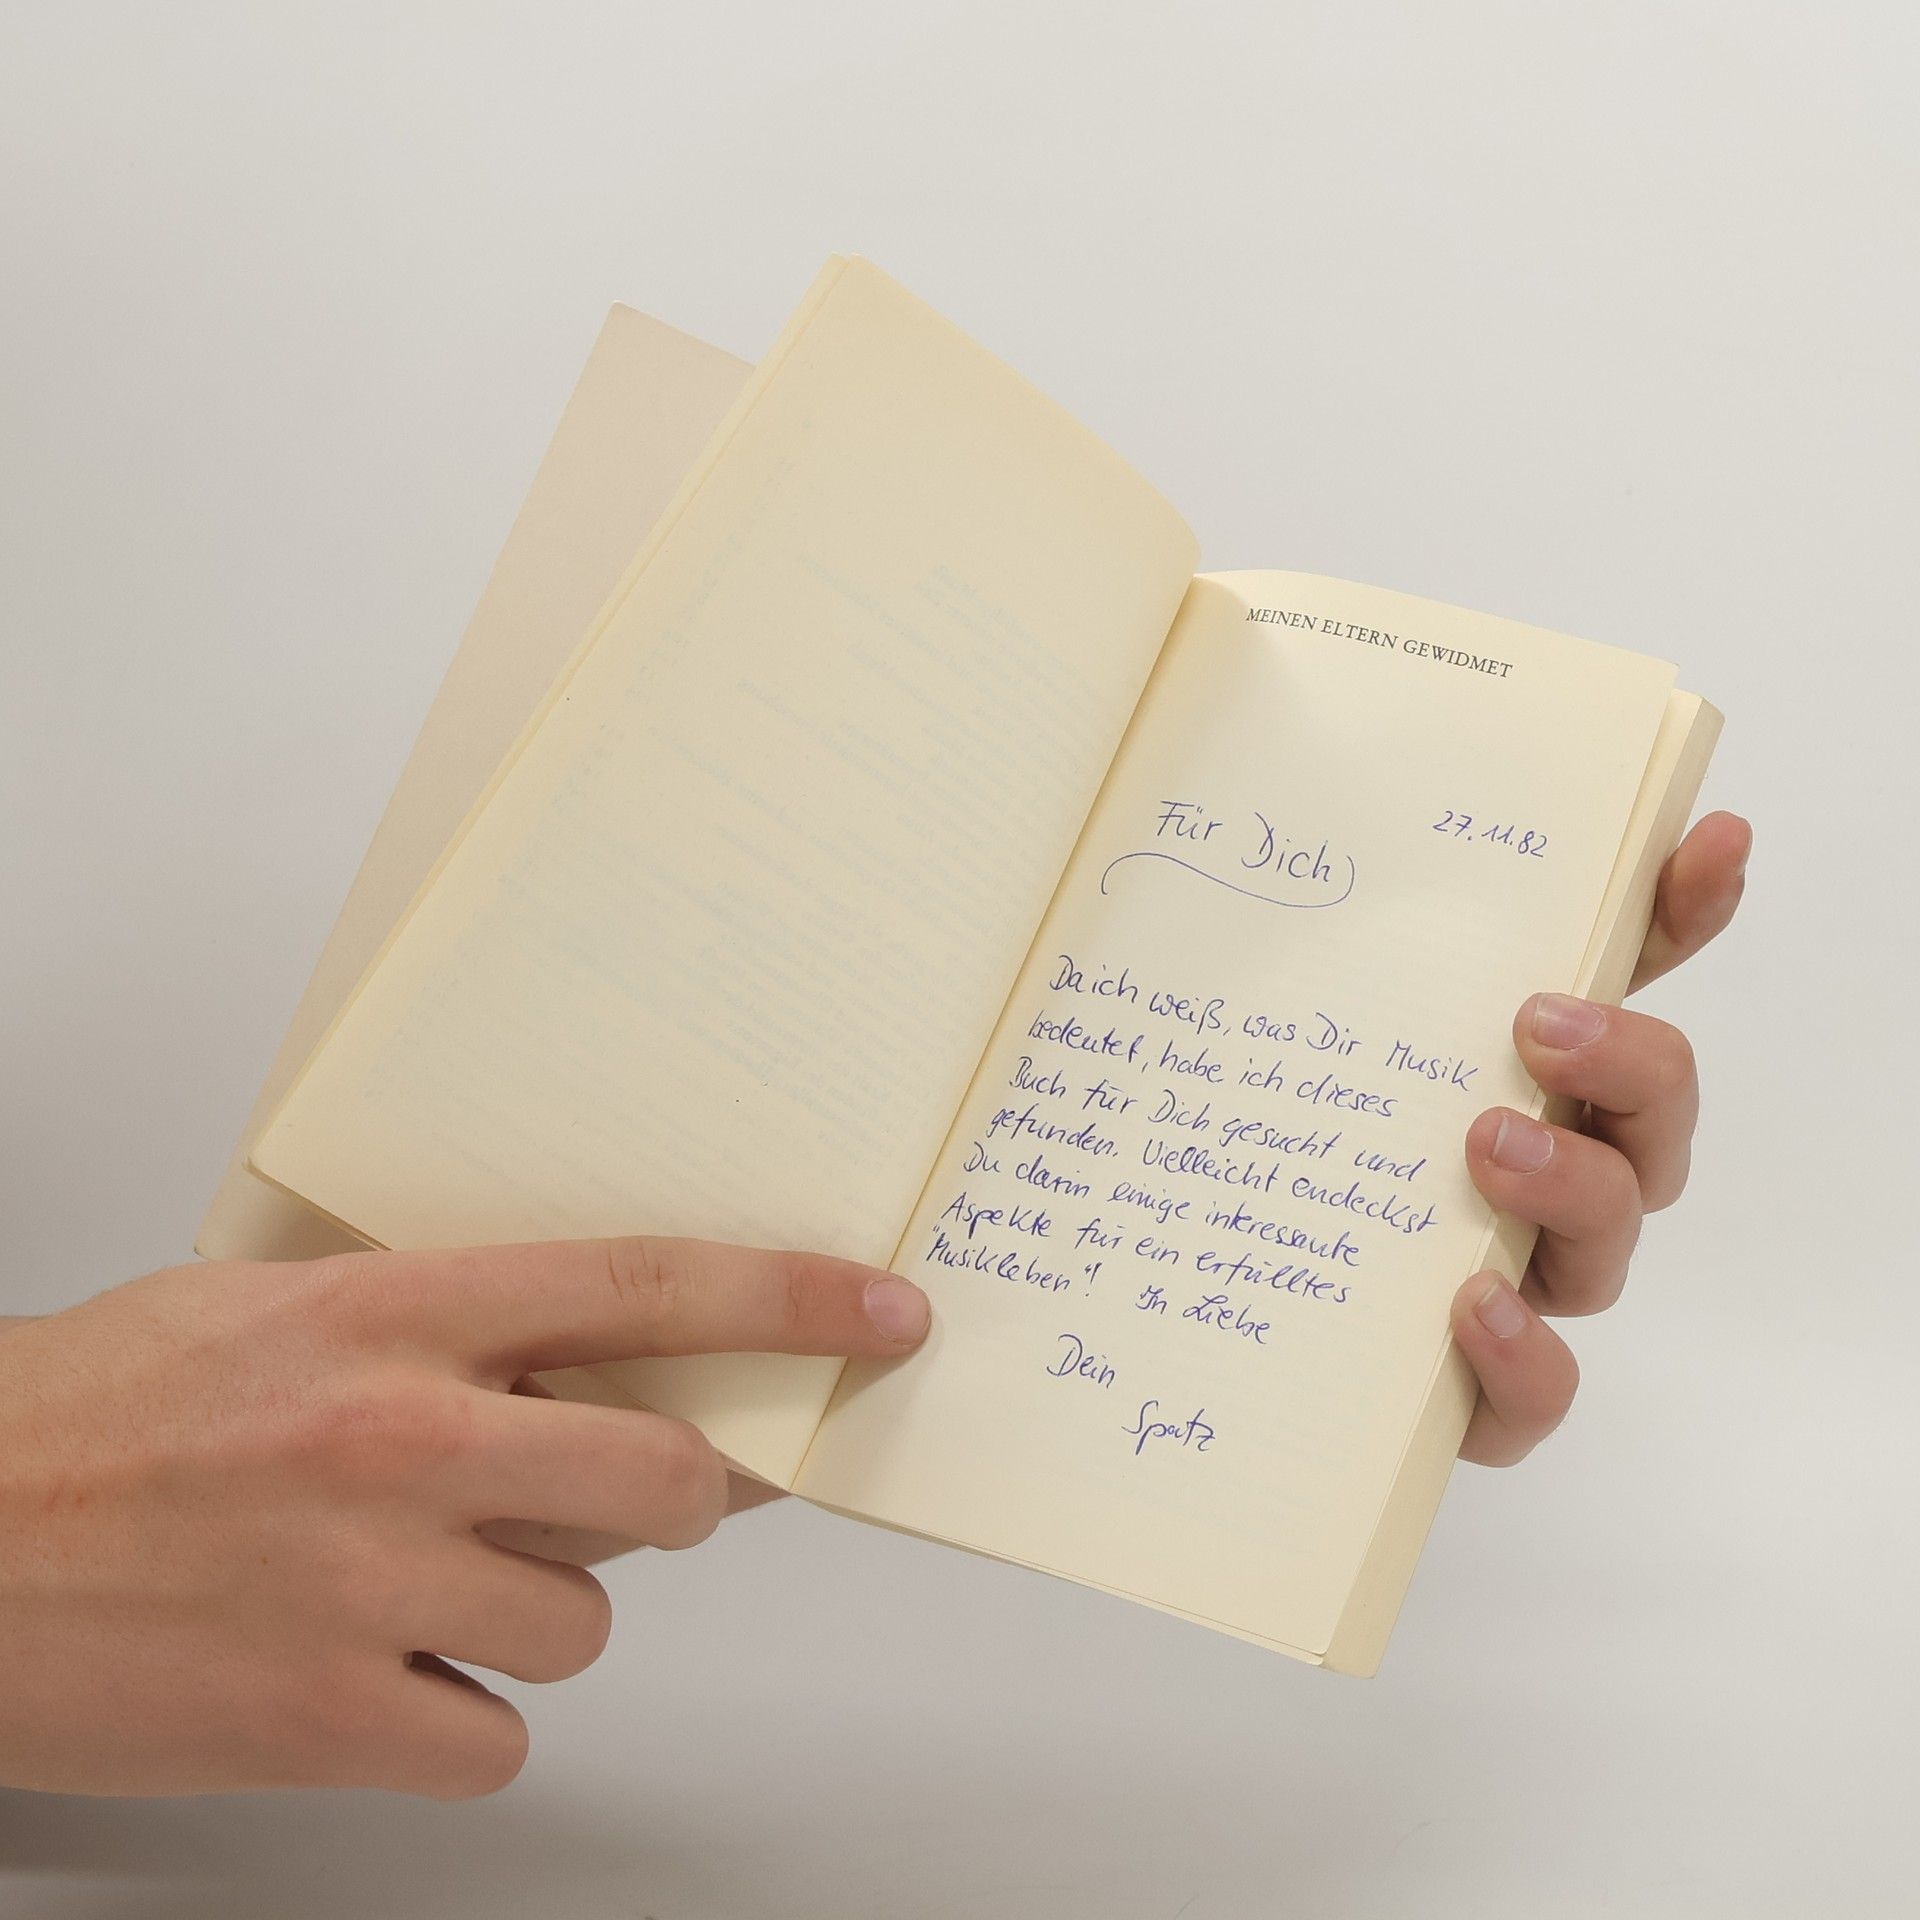 MEINEN ELTERN GEWIDMET
27.11.82
Für Dich
Da ich weiß, was Dir Musik
bedeutet, habe ich dieses
Buch für Dich gesucht und
gefunden. Vielleicht endeckst
Du darin einige interessante
Aspekte für ein erfülltes
"Musikleben"! In Liebe
Dein
Spatz